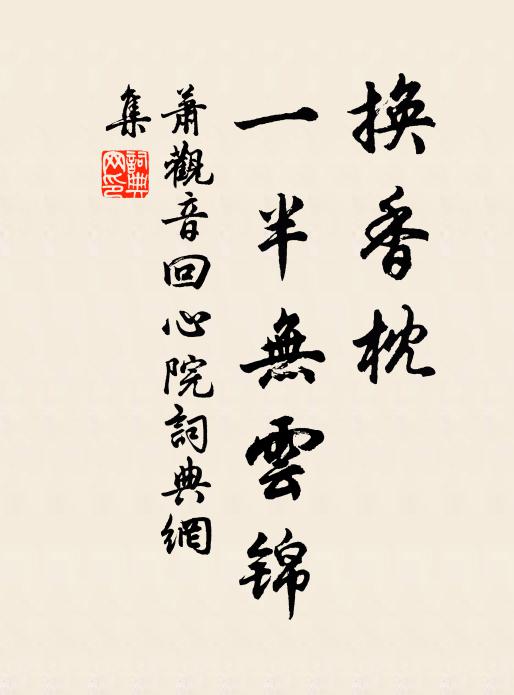 换香枕
一半無雲锦
蕭觀音回心院詞典網
集
詞典網印